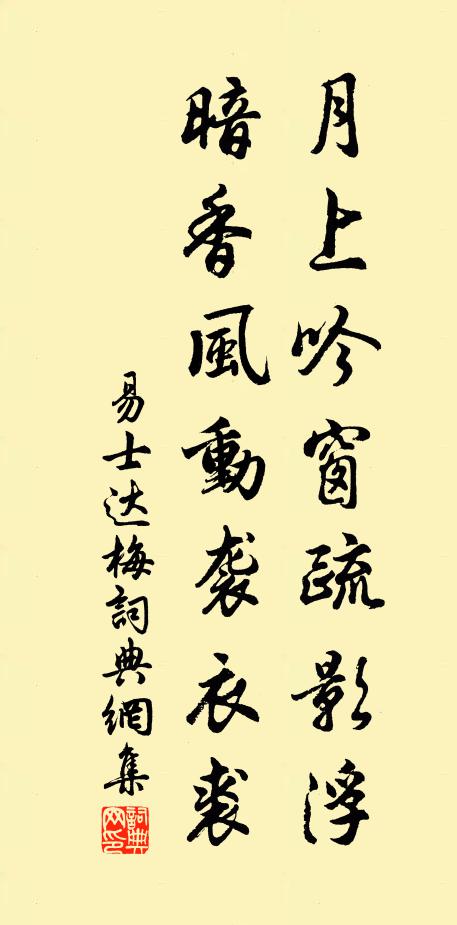 月上吟窗疏影浮
暗香風動袭衣裘
易士达梅詞典網集
詞典网印